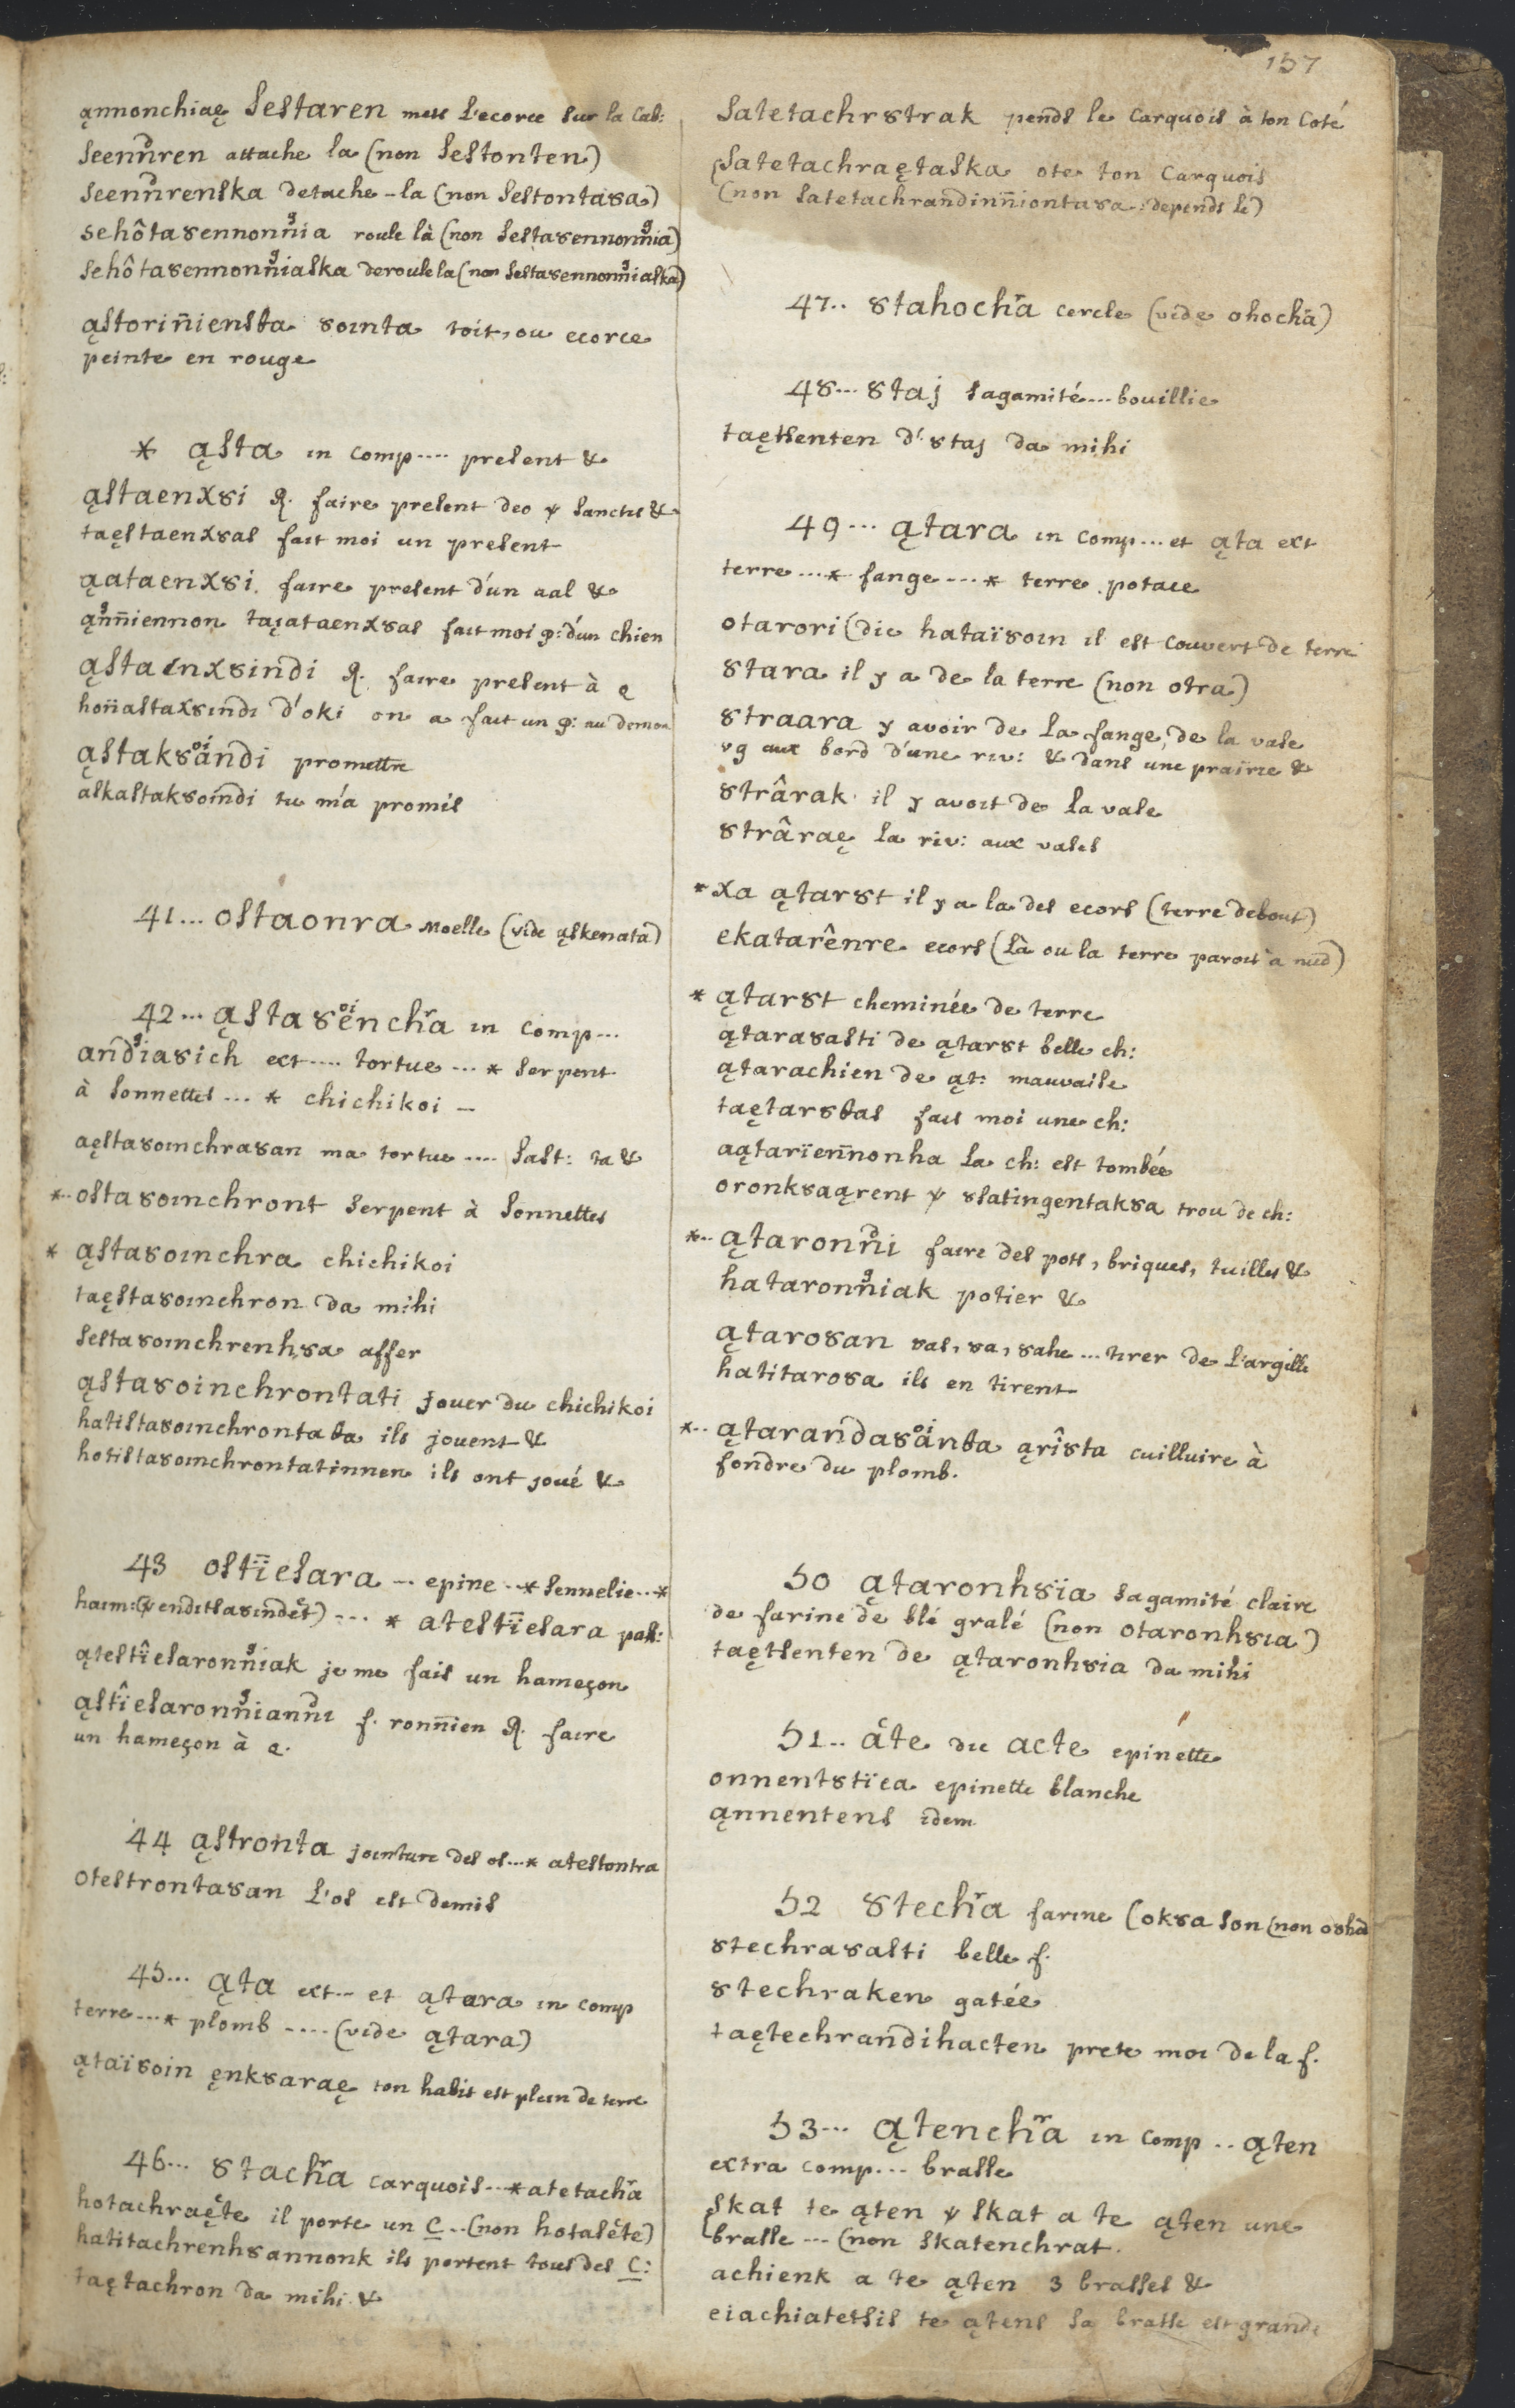 157
ąnnonchiaę sestaren mets l'ecorce sur la Cab:
seennᵈren attache la (non sestonten)
seennᵈrenska detache-la (non sestontaȣa)
sehôtaȣennonñia roule là (non sestaȣennonñia)
sehôtaȣennonñiaska deroule la (non sestaȣennonñiaska)
ąstoriñiensta ȣointa toit, ou ecorce
peinte en rouge
* ąsta in comp.... present &
ąstaenxȣi R. faire present deo ψ sanctis &
taęstaenxȣas fait moi un present
ąataenxȣi. faire present d'un aal &
ąñniennon taįataenxȣas fait moi p: d'un chien
ąstaenxȣindi R. faire present à q
hoñastaxȣindi d'oki on a fait un p: au demon
ąstakȣandi promettre
askastakȣoindi tu m'a promis
41... ostaonra moelle (vide ąskenata)
42... ąstaȣenchra in comp...
andiaȣich ext.... tortue ... * serpent
à sonnettes ... * chichikoi –
aęstaȣoinchraȣan ma tortue .... sast: ta &
*.. ostaȣoinchront serpent à sonnettes
* ąstaȣoinchra chichikoi
taęstaȣoinchron da mihi
sestaȣoinchrenhȣa affer
ąstaȣoinchrontati jouer du chichikoi
hatistaȣoinchrontata ils jouent &
hotistaȣoinchrontatinnen ils ont joué &
43 ostïesara ... epine ..* sennelie..*
haim:(ψ enditsaȣindet) ... * atestïesara pass:
ątestîesaronñiak je me fais un hameçon
ąstîesaronñianni f. ronñien R. faire
un hameçon à q.
44 ąstronta jointure des os...* atestontra
otestrontaȣan l'os est demis
45... ąta ext.. et ątara in comp
terre ...* plomb .... (vide ątara)
ątaïȣoin ęnkȣaraę ton habit est plein de terre
46... ȣtachra carquois...* atetachra
hotachraęte il porte un C .. (non hotasête)
hatitachrenhȣannonk ils portent tous des C:
taętachron da mihi. &
satetachrȣtrak pends le carquois à ton coté
(satetachraętaska ote ton carquois
(non satetachrandinñiontaȣa: depends le)
47.. ȣtahochra cercle (vide ohochra)
48... ȣtaj sagamité.... bouillie
taętsenten d'ȣtaj da mihi
49... ątara in comp... et ąta ext
terre ...* fange ...* terre potace
otarori (dic hataïȣoin il est couvert de terre
ȣtara il y a de la terre (non otra)
ȣtraara y avoir de la fange, de la vase
vg aux bord d'une riv: & dans une prairie &
ȣtrârak il y avoit de la vase
ȣtrâraę la riv: aux vases
* xa ątarȣt il y a la des ecors (terre debout)
ekatarênre ecors (là ou la terre paroit a nud)
* ątarȣt cheminée de terre
ątaraȣasti de ątarȣt belle ch:
ątarachien de ąt: mauvaise
taętarȣtas fais moi une ch:
aątarïenñonha la ch: est tombée
oronkȣaąrent ψ ȣlatingentakȣa trou de ch:
*.. ątaronni faire des pots, briques, tuilles &
hataronñiak potier &
ątaroȣan ȣas, ȣa, ȣahe ... tirer de l'argille
hatitaroȣa ils en tirent
*.. ątarandaȣanta ąrîsta cuilluire à
fondre du plomb.
50 ątaronhȣïa sagamité claire
de farine de blé gralé (non otaronhȣia)
taętsenten de ątaronhȣia da mihi
51.. âte dic acte epinette
onnentȣtïea epinette blanche
ąnnentens idem
52 ȣtechra farine (okȣa son (non oȣha
ȣtechraȣasti belle f.
ȣtechraken gatée
taętechrandihacten prete moi de la f.
53... ątenchra in comp .. ąten
extra comp... brasse
skat te ąten ψ skat a te ąten une
brasse ... (non skatenchrat.
achienk a te ąten 3 brasses &
eiachiatetsis te ątens sa brasse est grande